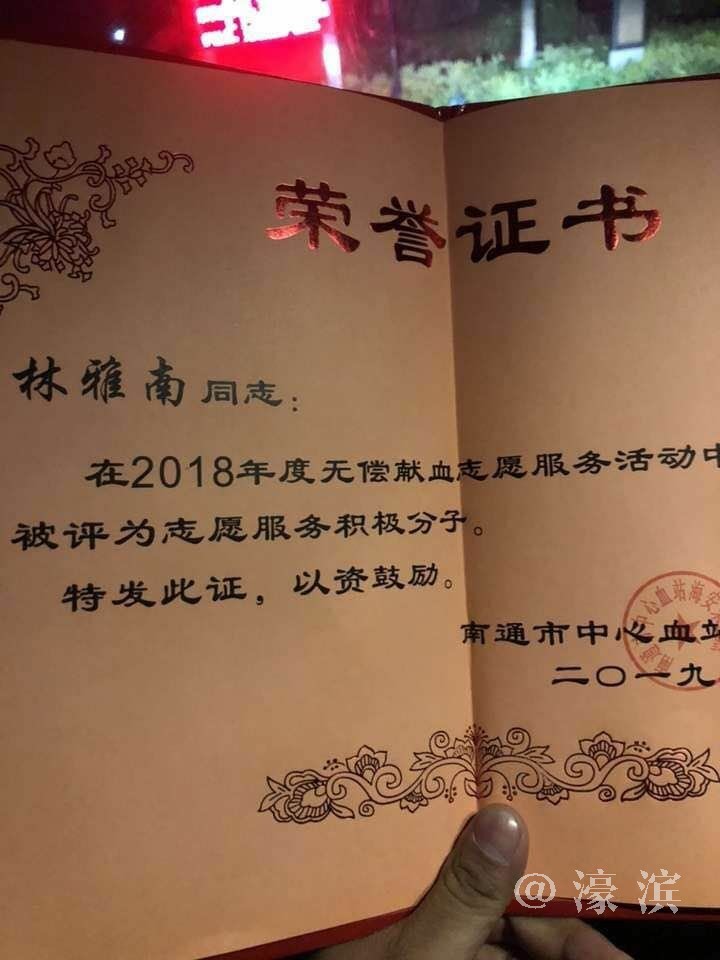 荣誉证书
林雅南同志：
在2018年度无偿献血志愿服务活动中
被评为志愿服务积极分子。
特发此证，以资鼓励。
南通市中心血站
二〇一九
中心血站海安
@濠滨